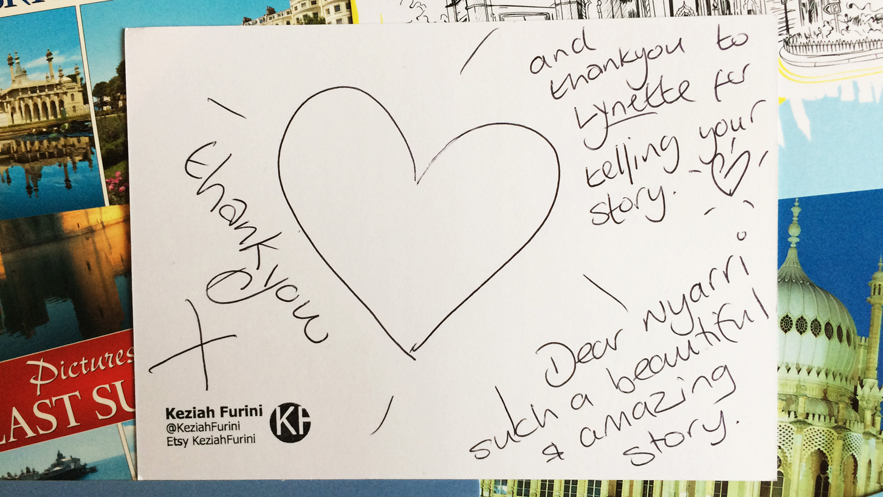 Dear Nyarri
such a beautiful
& amazing
story.
and
thankyou to
Lynette for
telling your
story.
thankyou
X
Keziah Furini
@KeziahFurini
Etsy KeziahFurini
KF
Pictures
LAST SU